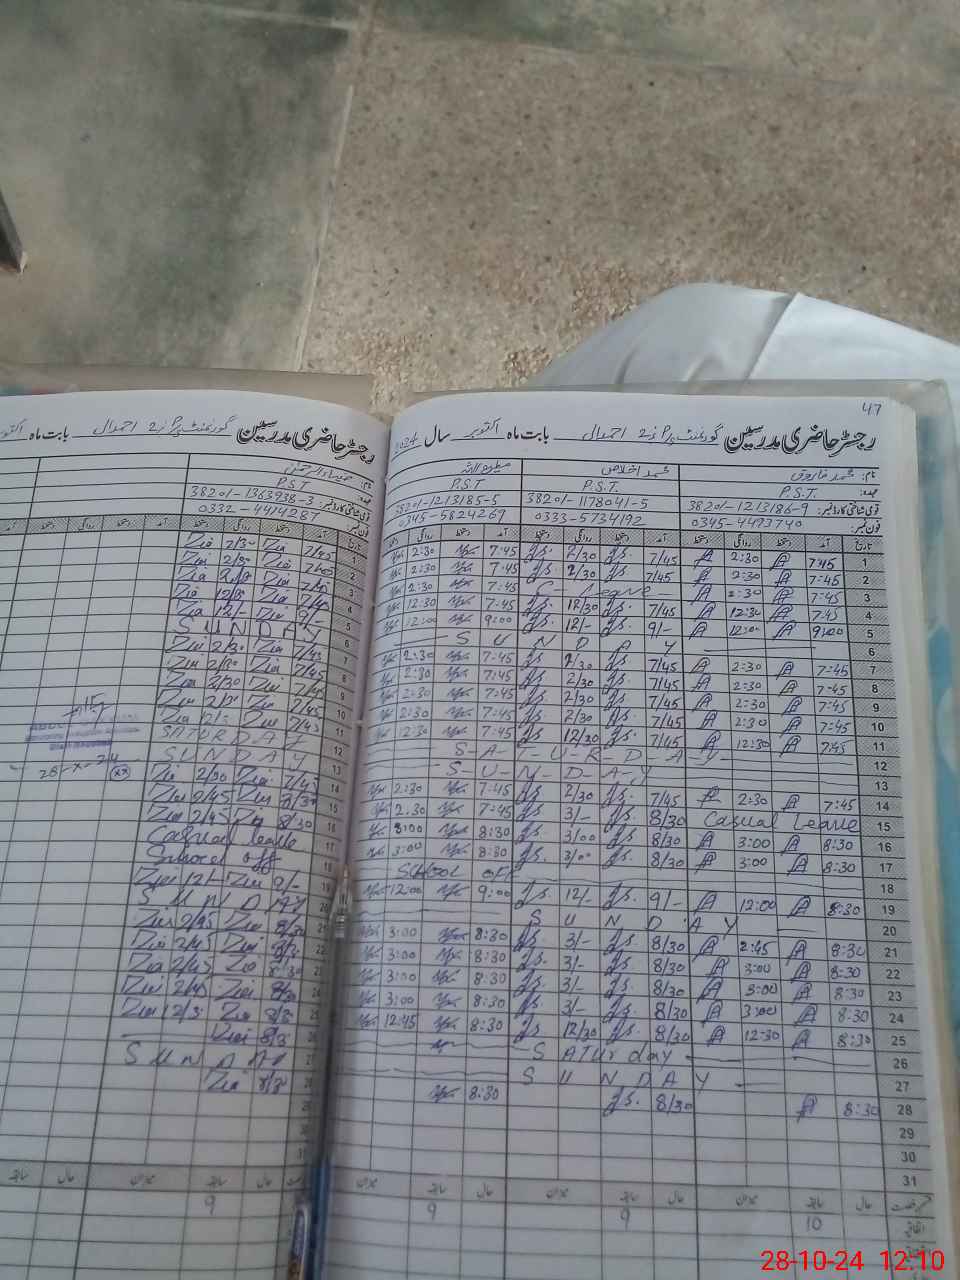 47
رجسٹر حاضری مدرسین گورنمنٹ 2 احمدال بابت ماہ اکتوبر سال 2024
نام: محمد فاروق محمد اخلاص
عہدہ: P.S.T. P.S.T. P.S.T
قومی شناختی کارڈ نمبر: 38201-1213186-9 38201-1178041-5 38201-1213185-5
فون نمبر: 0345-4493740 0333-5734192 0345-5824269
تاریخ آمد دستخط روانگی دستخط
1 7:45 2:30 7/45 2/30 7:45 2:30
2 7:45 2:30 7/45 2/30 7:45 2:30
3 7:45 2:30 C- Leave 7:45 2:30
4 7:45 12:30 7/45 12/30 7:45 12:30
5 9:00 12:00 9/- 12/- 9:00 12:00
6 S U N D A Y
7 7:45 2:30 7/45 2/30 7:45 2:30
8 7:45 2:30 7/45 2/30 7:45 2:30
9 7:45 2:30 7/45 2/30 7:45 2:30
10 7:45 2:30 7/45 2/30 7:45 2:30
11 7:45 12:30 7/45 12/30 7:45 12:30
12 S-A-T-U-R-D-A-Y
13 S-U-N-D-A-Y
14 7:45 2:30 7/45 2/30 7:45 2:30
15 Casual Leave 8/30 3/- 7:45 2:30
16 8:30 3:00 8/30 3/00 8:30 3:00
17 8:30 3:00 8/30 3/00 8:30 3:00
18 SCHOOL OFF
19 8:30 12:00 9/- 12/- 9:00 12:00
20 S U N D A Y
21 8:30 2:45 8/30 3/- 8:30 3:00
22 8:30 3:00 8/30 3/- 8:30 3:00
23 8:30 3:00 8/30 3/- 8:30 3:00
24 8:30 3:00 8/30 3/- 8:30 3:00
25 8:30 12:30 8/30 12/30 8:30 12:45
26 S ATUr day
27 S U N D A Y
28 8:30 8/30 8:30
29
30
31
حال سابقہ میزان حال سابقہ میزان حال سابقہ میزان
اتفاقیہ 10 9 9
رجسٹر حاضری مدرسین گورنمنٹ 2 احمدال بابت ماہ
نام:
عہدہ: P.S.T
قومی شناختی کارڈ نمبر: 38201-1363938-3
فون نمبر: 0332-4414287
تاریخ آمد دستخط روانگی دستخط
1 7/45 Zia 2/30 Zia
2 Zia
3 Zia
4 Zia
5 9/- Zia 12/- Zia
6 S U N D A Y
7 7/45 Zia 2/30 Zia
8 7/45 Zia 2/30 Zia
9 7/45 Zia 2/30 Zia
10 7/45 Zia
11 7/45 Zia
12 SATURDAY
13 SUNDAY
14 7/45 Zia 2/30 Zia
15 8/30 Zia 2/45 Zia
16 8/30 Zia 2/45 Zia
17 Casual leave
18 School off
19 9/- Zia 12/- Zia
20 S U N D A Y
21 8/30 Zia 2/45 Zia
Zia 2/45 Zia
8/30 Zia 2/45 Zia
8/30 Zia 2/45 Zia
Zia
Zia
S U N D A Y
Zia
حال سابقہ میزان حال سابقہ
9
28-X-24
28-10-24 12:10